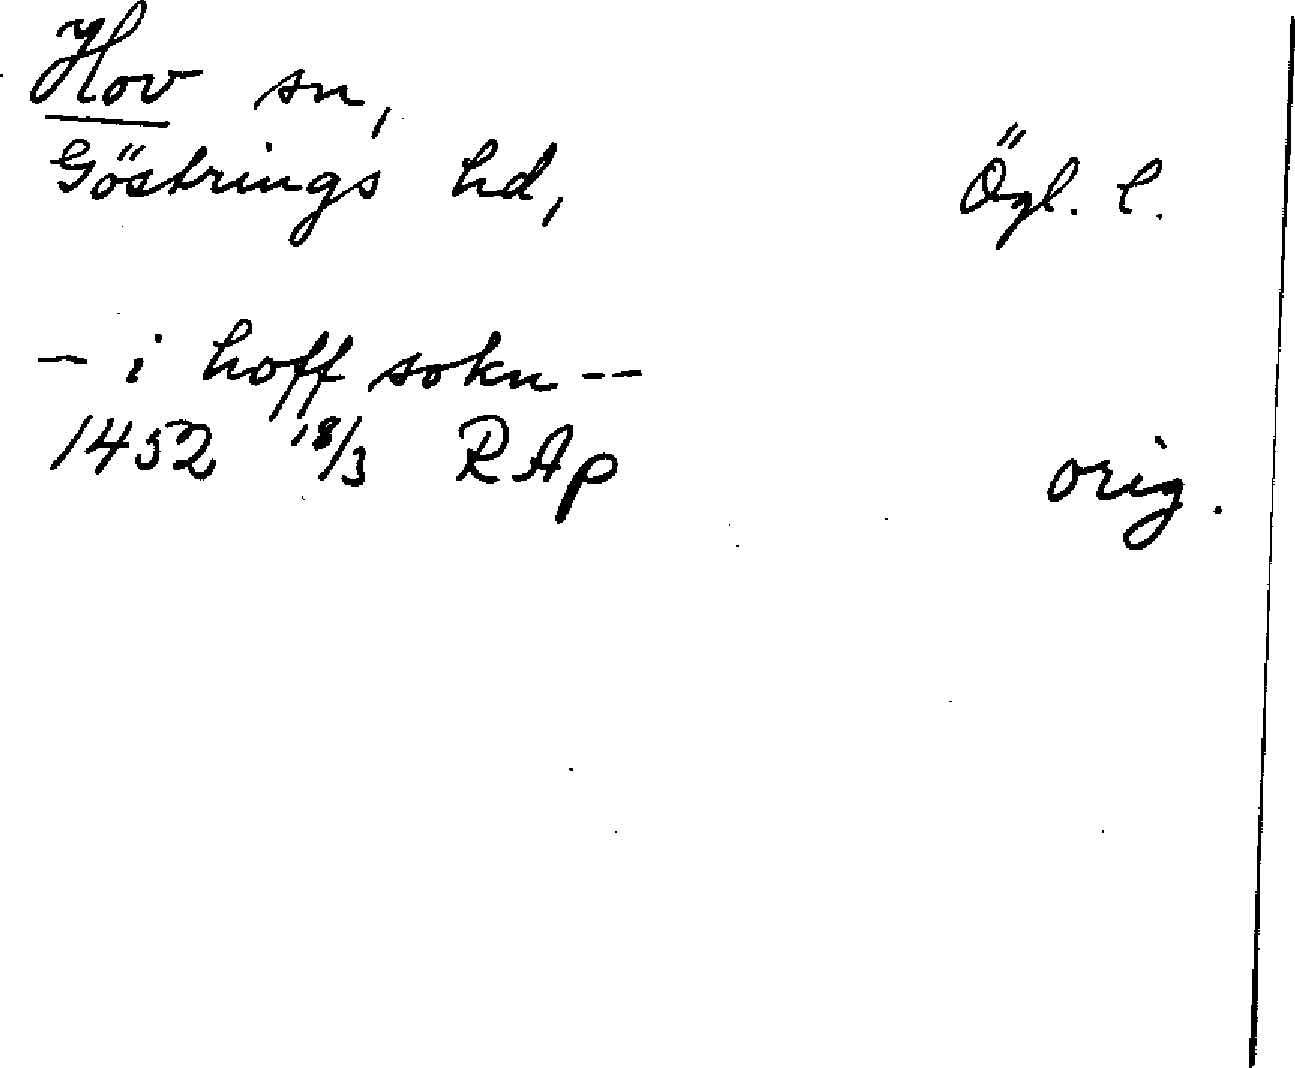 Hov sn,
Göstrings hd, Ögl. l.
- i hoff sokn --
1452 18/3 RAp orig.